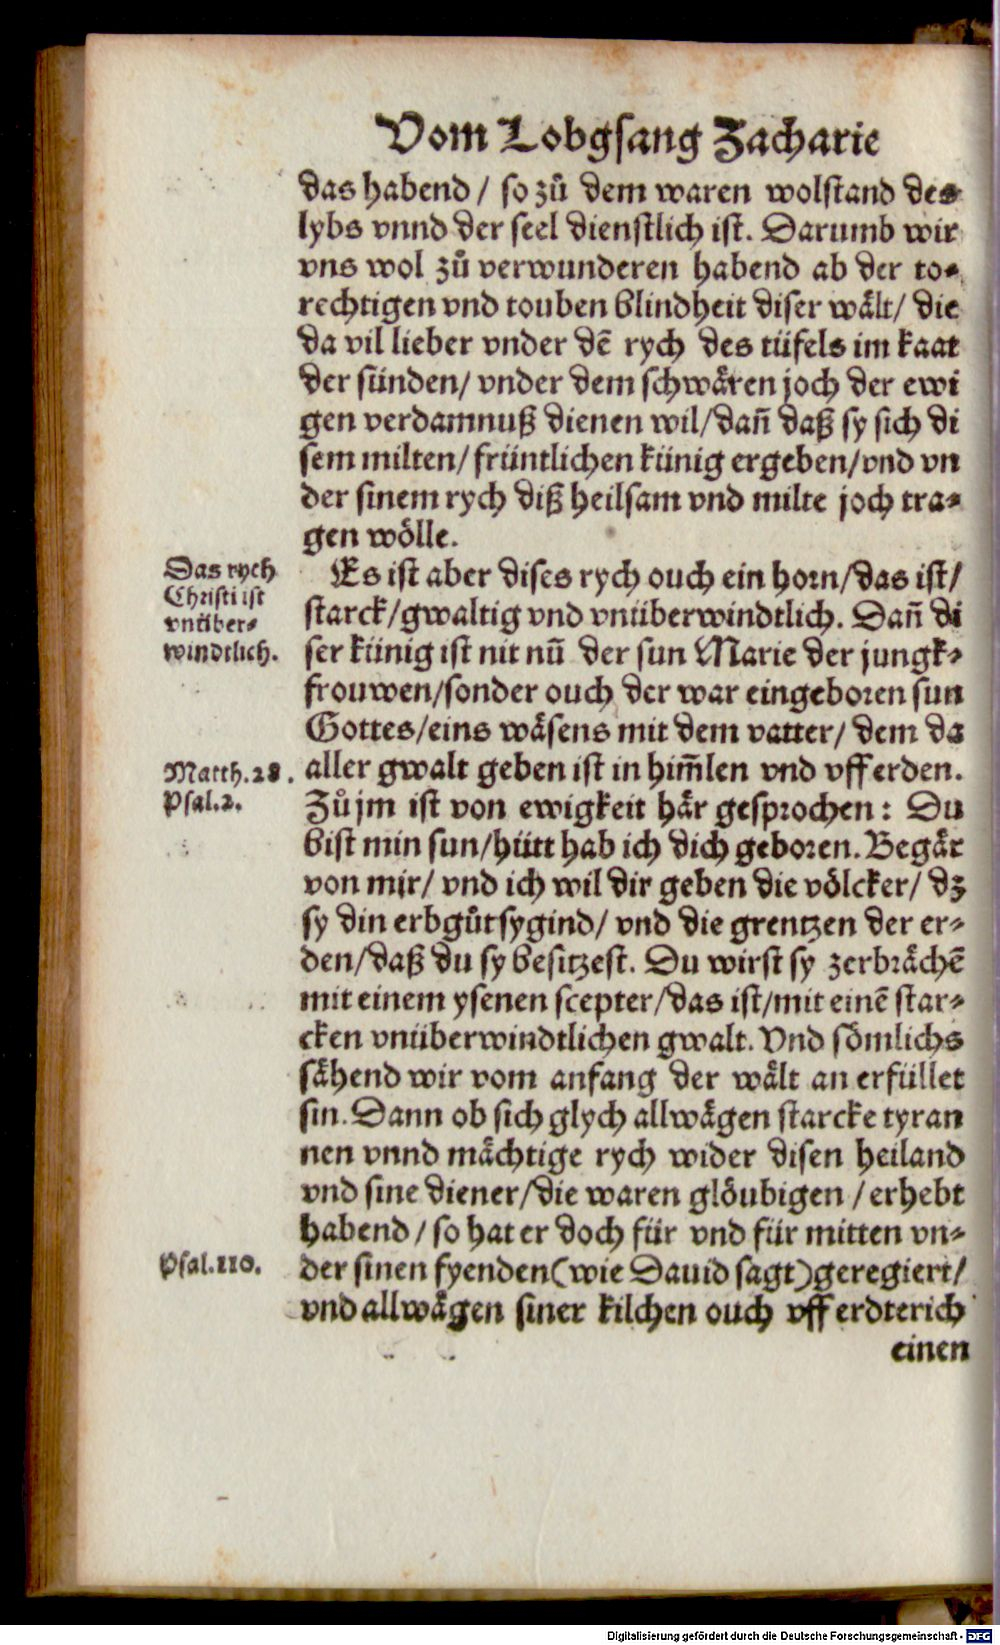 Vom Lobgsang Zacharie
das habend / so zů dem waren wolstand des
lybs vnnd der seel dienstlich ist. Darumb wir
vns wol zů verwunderen habend ab der to⸗
rechtigen vnd touben blindheit diser wält / die
da vil lieber vnder dē rych des tüfels im kaat
der sünden / vnder dem schwären joch der ewi
gen verdamnuß dienen wil / dañ daß sy sich di
sem milten / früntlichen künig ergeben / vnd vn
der sinem rych diß heilsam vnd milte joch tra⸗
gen wölle.
Das rych
Christi ist
vnüber⸗
windtlich.
Es ist aber dises rych ouch ein horn / das ist /
starck / gwaltig vnd vnüberwindtlich. Dañ di
ser künig ist nit nū der sun Marie der jungk⸗
frouwen / sonder ouch der war eingeboren sun
Gottes / eins wäsens mit dem vatter / dem da
Matth.28.
aller gwalt geben ist in him̄len vnd vff erden.
Psal.2.
Zů jm ist von ewigkeit här gesprochen: Du
bist min sun / hütt hab ich dich geboren. Begär
von mir / vnd ich wil dir geben die völcker / dz
sy din erbgůt sygind / vnd die grentzen der er⸗
den / daß du sy besitzest. Du wirst sy zerbrächē
mit einem ysenen scepter / das ist / mit einē star⸗
cken vnüberwindtlichen gwalt. Vnd sömlichs
sähend wir vom anfang der wält an erfüllet
sin. Dann ob sich glych allwägen starcke tyran
nen vnnd mächtige rych wider disen heiland
vnd sine diener / die waren glöubigen / erhebt
habend / so hat er doch für vnd für mitten vn⸗
Psal.110.
der sinen fyenden (wie Dauid sagt) geregiert /
vnd allwägen siner kilchen ouch vff erdterich
einen
Digitalisierung gefördert durch die Deutsche Forschungsgemeinschaft - DFG